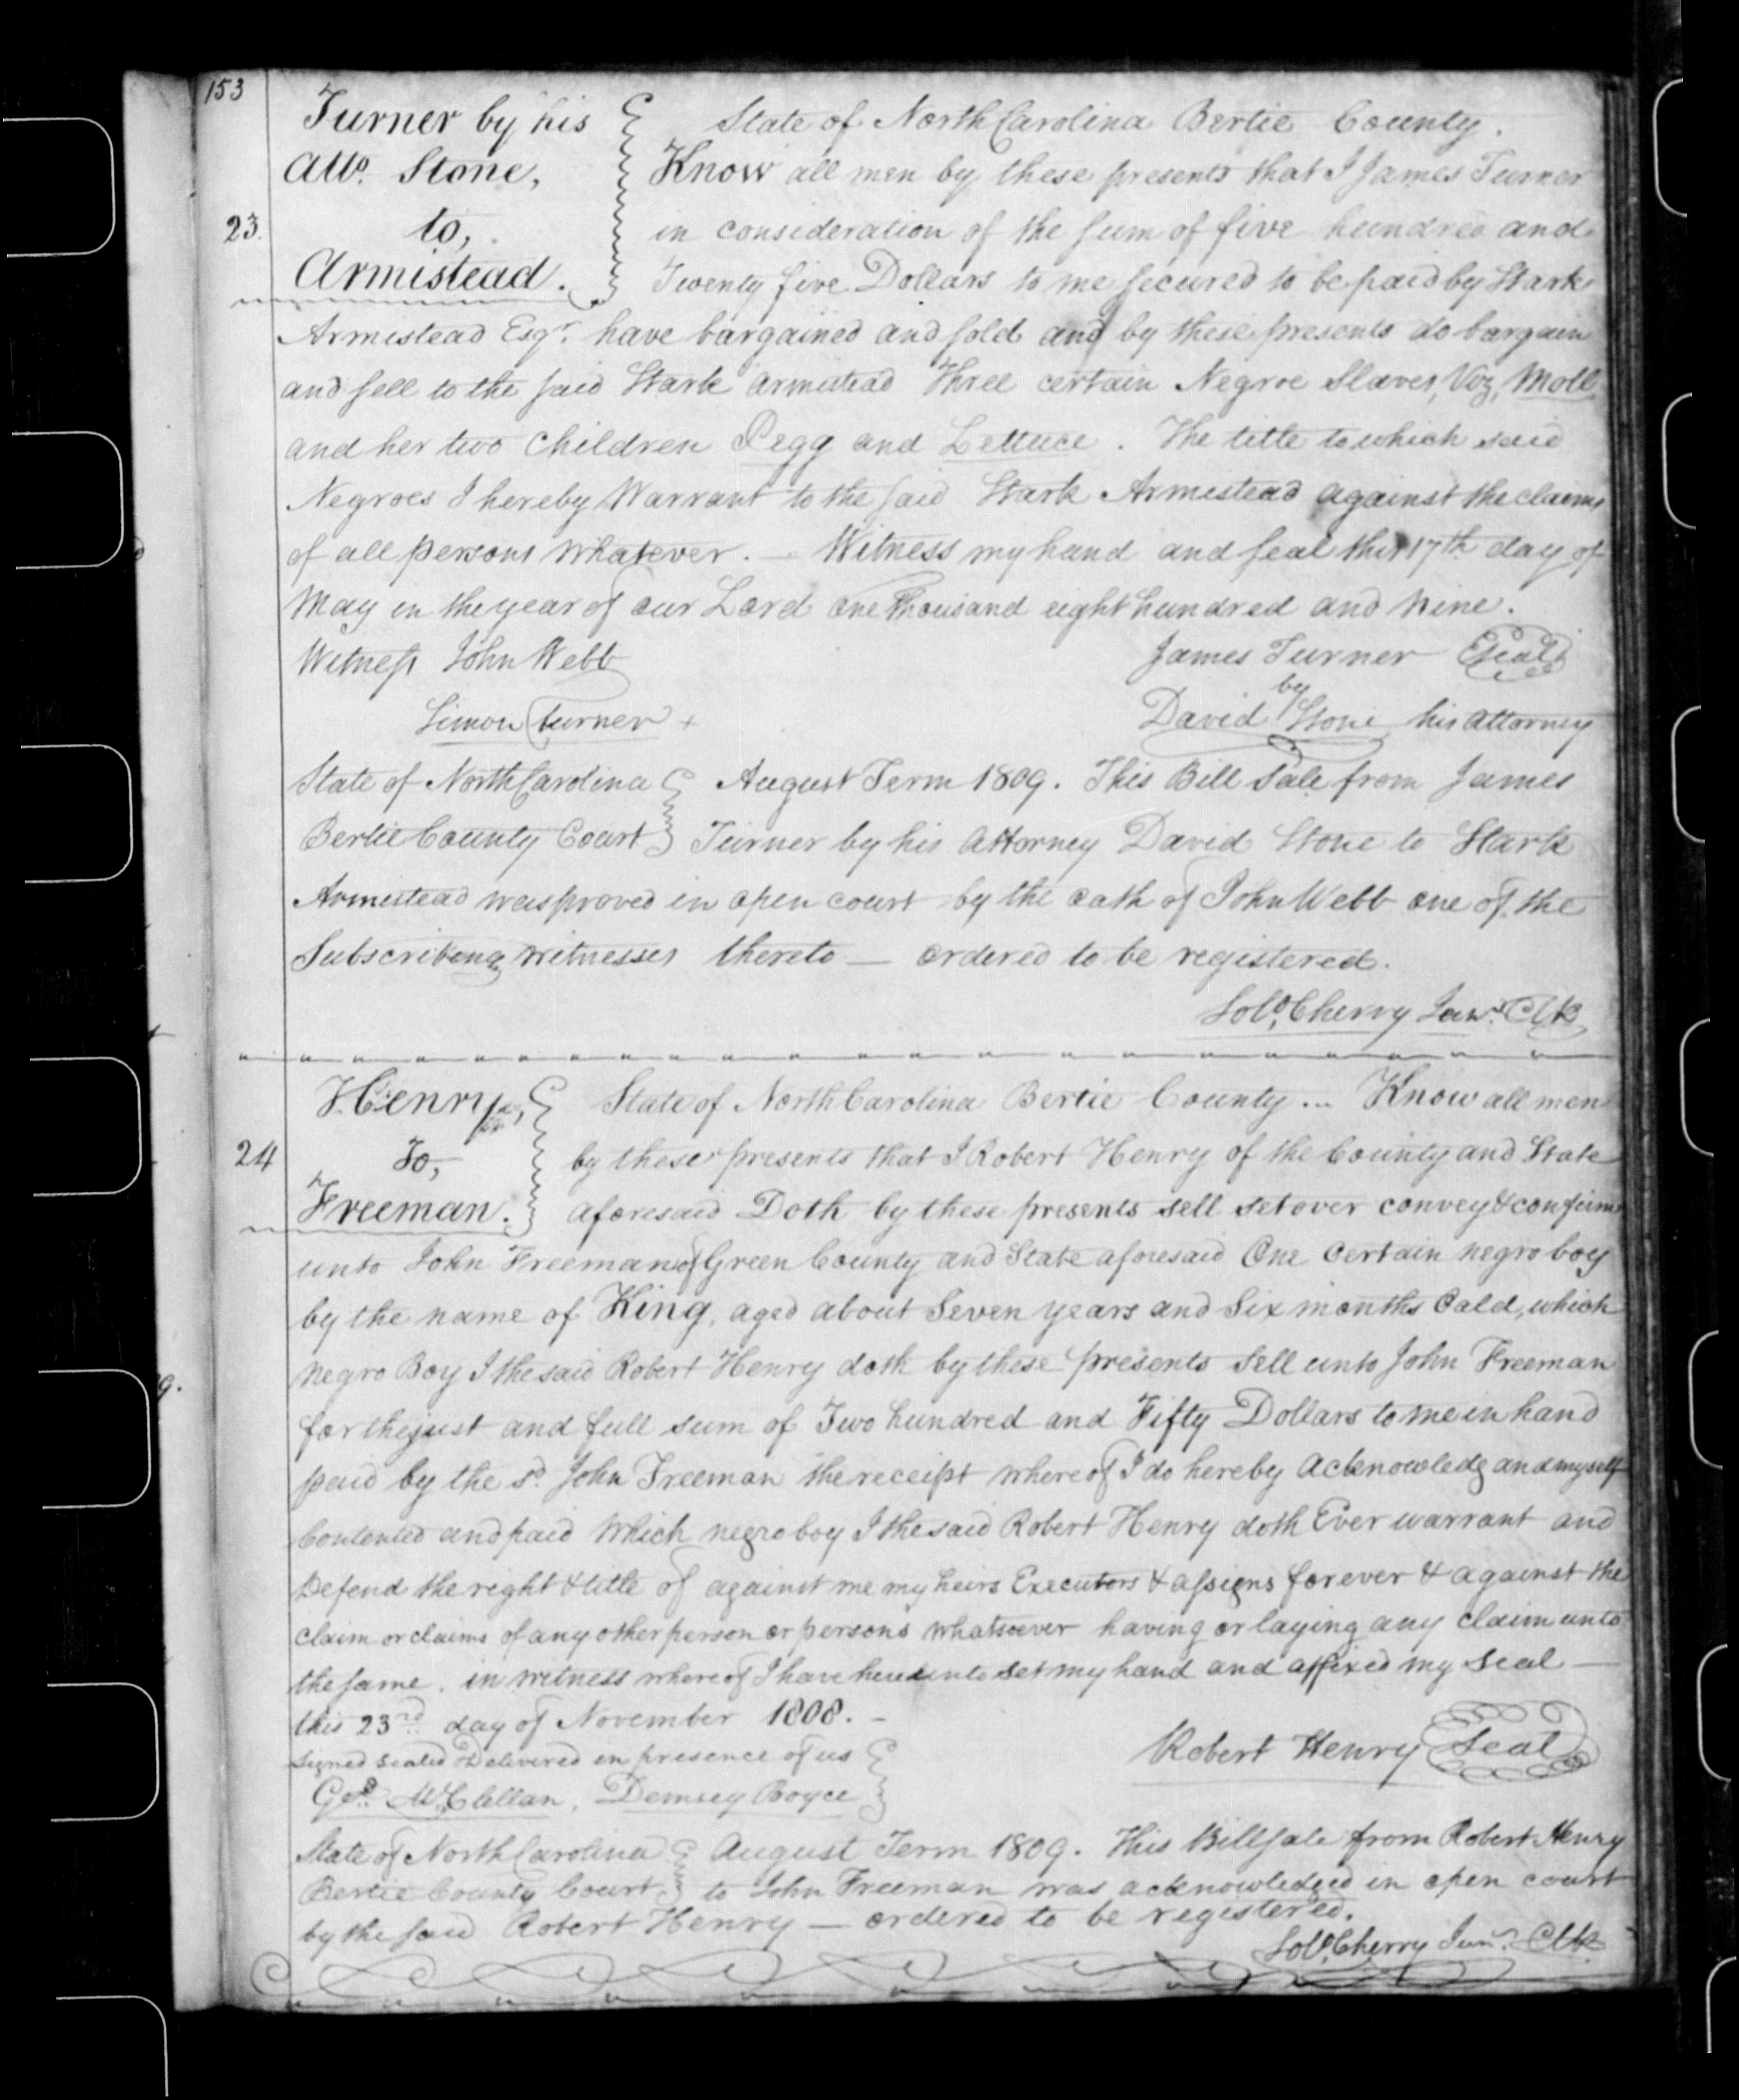 153
Turner by his
Atto. Stone,
23. to,
Armistead.
State of North Carolina Bertie County.
Know all men by these presents that I James Turner
in consideration of the sum of five hundred and
Twenty five Dollars to me secured to be paid by Stark
Armistead Esqr. have bargained and sold and by these presents do bargain
and sell to the said Stark Armistead Three certain Negroe Slaves, Viz, Moll,
and her two Children Pegg and Lettuce. The title to which said
Negroes I hereby Warrant to the said Stark Armistead against the claims
of all persons whatever. — Witness my hand and seal this 17th day of
May in the year of our Lord one thousand eight hundred and nine.
Witness John Webb
James Turner Seal
Simon Turner +
by
David Stone his attorney
State of North Carolina
Bertie County Court
August Term 1809. This Bill Sale from James
Turner by his Attorney David Stone to Stark
Armistead was proved in open court by the oath of John Webb one of the
Subscribeng witnesses thereto — ordered to be registered.
Solo. Cherry Junr. Clk
Henry,
24 To,
Freeman.
State of North Carolina Bertie County... Know all men
by these presents that I Robert Henry of the County and State
aforesaid Doth by these presents sell set over convey & confirm
unto John Freeman of Green County and State aforesaid One certain negro boy
by the name of King, aged about Seven years and Six months oald, which
negro Boy I the said Robert Henry doth by these presents Sell unto John Freeman
for the just and full sum of Two hundred and Fifty Dollars to me in hand
paid by the sd. John Freeman the receipt where of I do hereby Acknowledg and myself
Contented and paid Which negro boy I the said Robert Henry doth Ever warrant and
Defend the right & title of against me my heirs Executors & assigns forever & against the
claim or claims of any other person or persons whatsoever having or laying any claim unto
the same. in witness where of I have hereunto Set my hand and affixed my Seal —
this 23rd day of November 1808. —
Signed Sealed & Delivered in presence of us
Robert Henry Seal
Geo. McClellan, Demsey Boyce
State of North Carolina
Bertie County Court
August Term 1809. This Bill sale from Robert Henry
to John Freeman was acknowledged in open court
by the said Robert Henry — ordered to be registered.
Solo. Cherry Junr. Clk